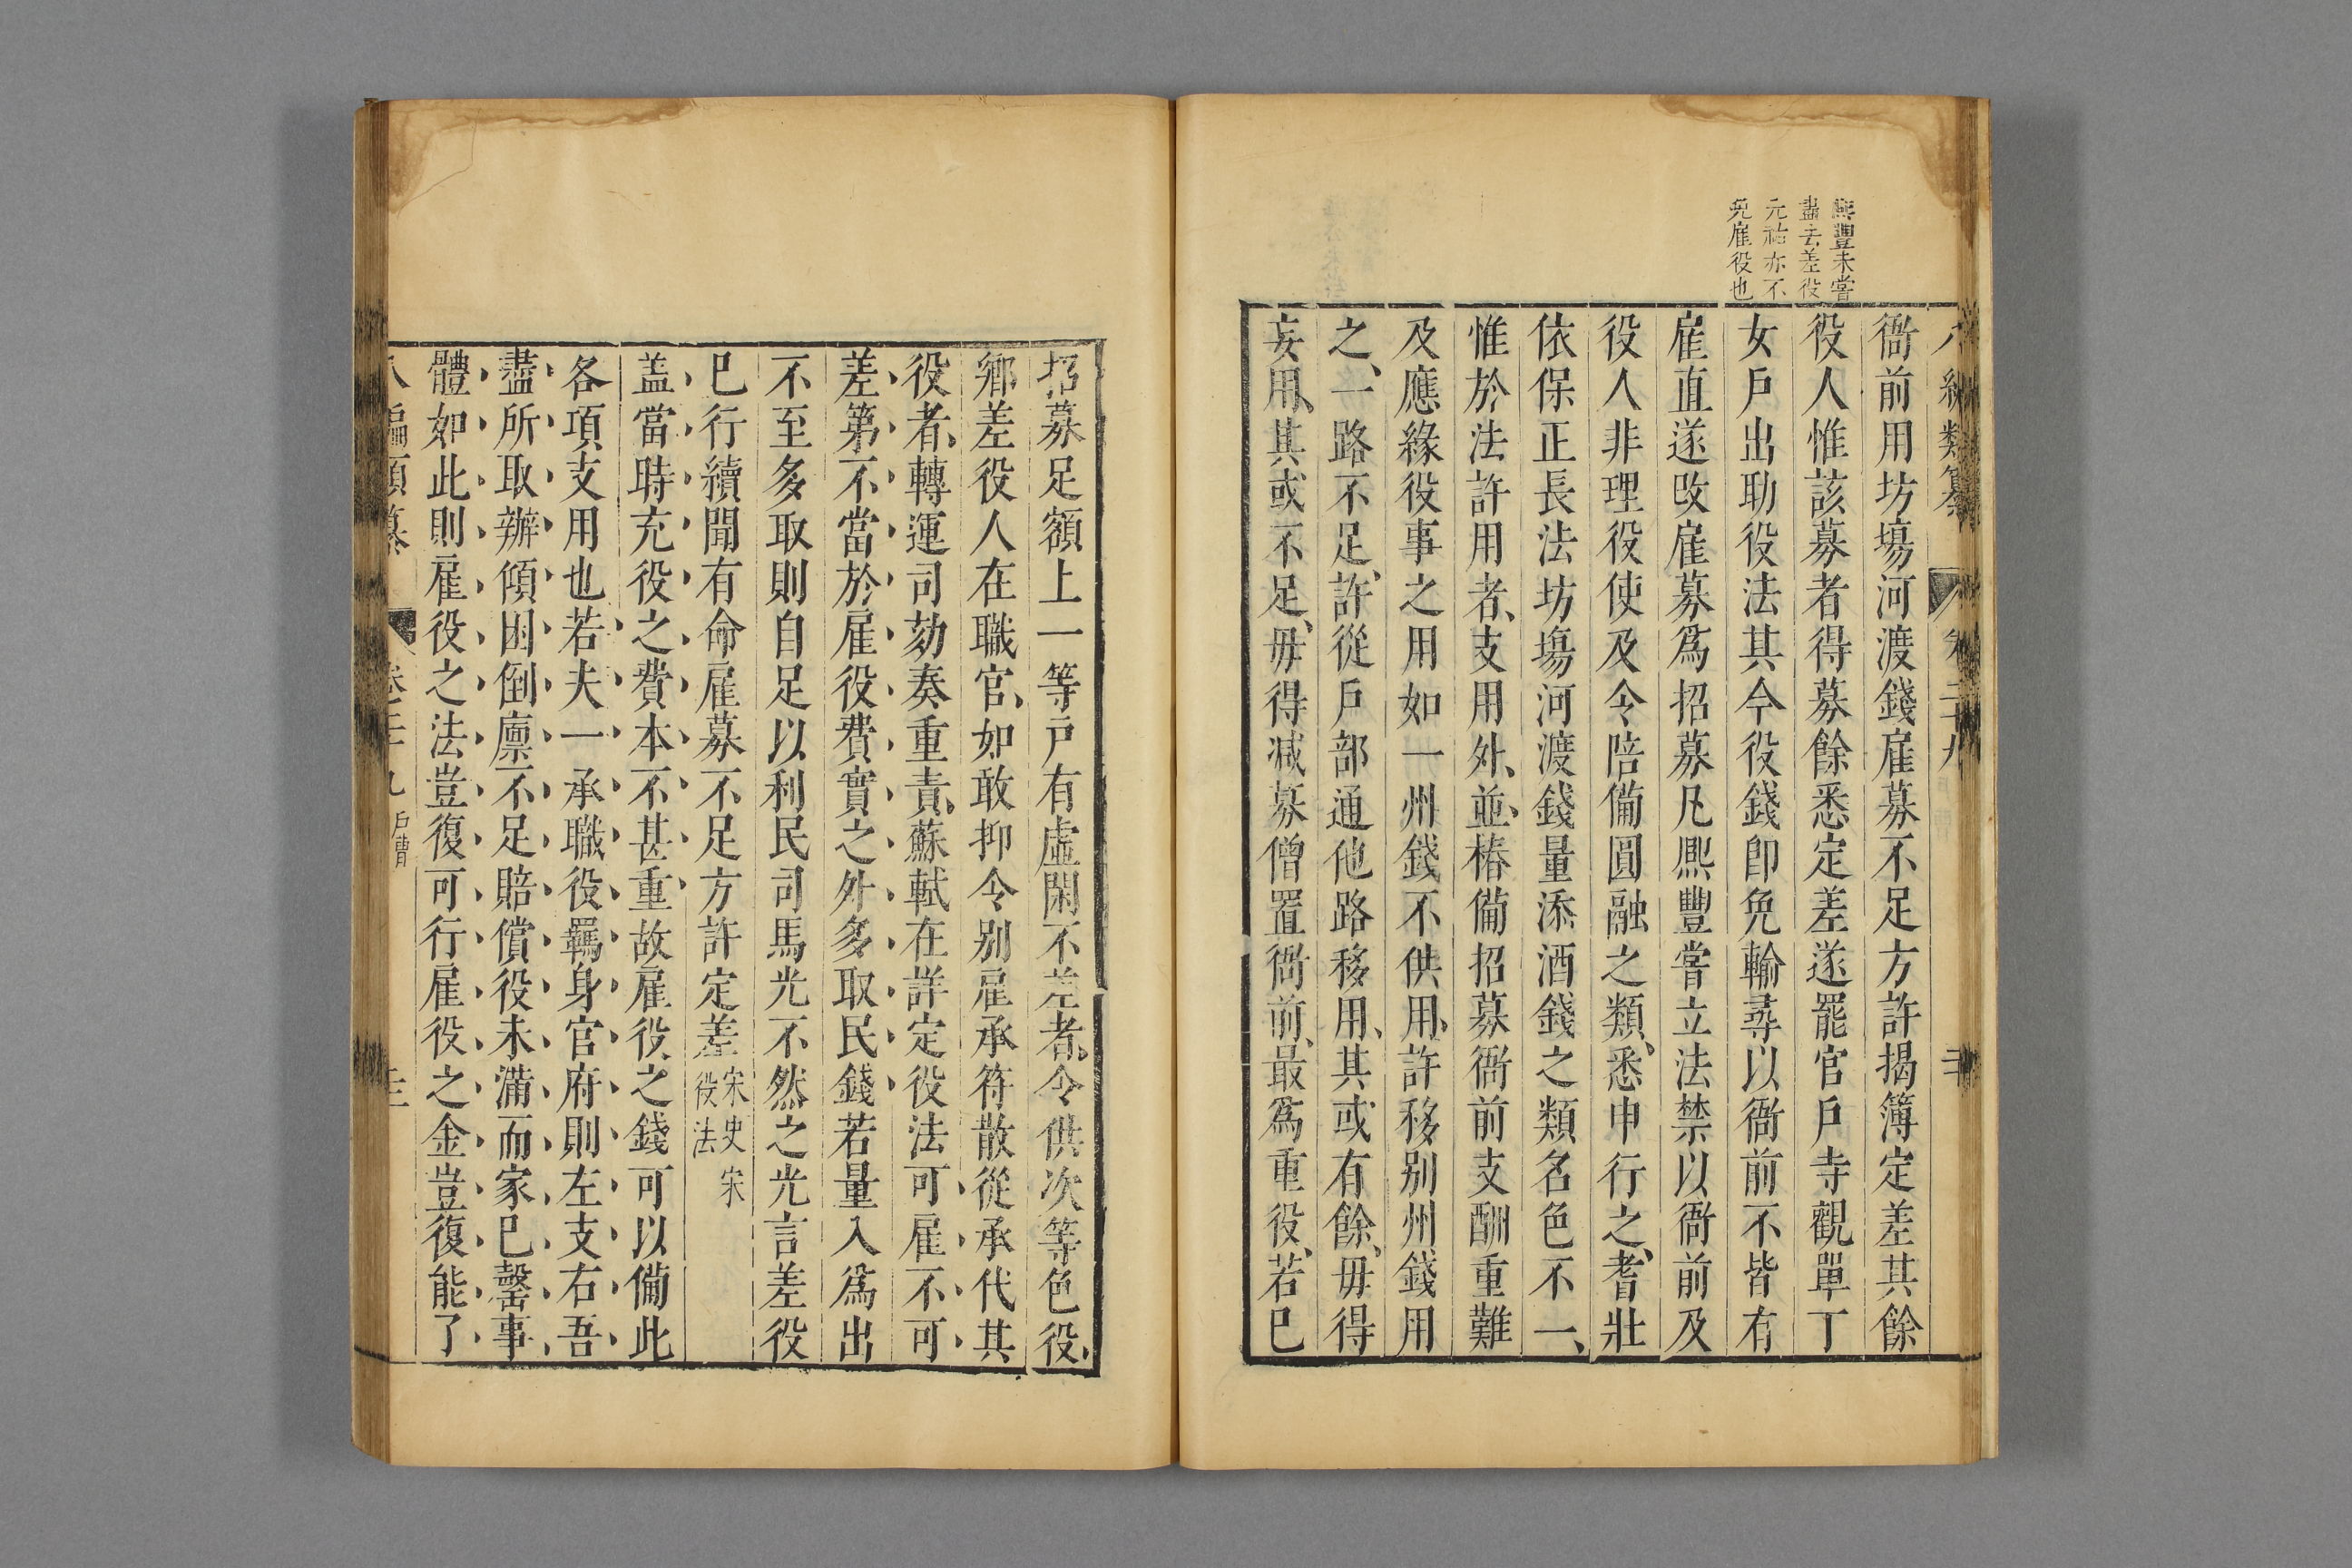 熙豐未嘗
盡去差役
元祐亦不
免雇役也
八編類纂 卷二十九 二十
衙前用坊塲河渡錢雇募不足方許揭簿定差其餘
役人惟該募者得募餘悉定差遂罷官戶寺觀單丁
女戶出助役法其今役錢卽免輸尋以衙前不皆有
雇直遂改雇募爲招募凡熙豐嘗立法禁以衙前及
役人非理役使及令陪備圓融之類、悉申行之、耆壯
依保正長法坊塲河渡錢量添酒錢之類名色不一、
惟於法許用者、支用外、並椿備招募衙前支酬重難
及應緣役事之用如一州錢不供用、許移别州錢用
之、一路不足、許從戶部通他路移用、其或有餘、毋得
妄用、其或不足、毋得减募僧置衙前、最爲重役、若已
招募足額上一等戶有虛閑不差者、令供次等色役、
鄉差役人在職官、如敢抑令别雇承符散從承代其
役者、轉運司劾奏重責、蘇軾在詳定役法可雇不可
差第不當於雇役費實之外多取民錢若量入爲出
不至多取則自足以利民司馬光不然之光言差役
已行續聞有命雇募不足方許定差 宋史 宋
役法
盖當時充役之費本不甚重故雇役之錢可以備此
各項支用也若夫一承職役羈身官府則左支右吾
盡所取辦傾囷倒廪不足賠償役未滿而家已罄事
體如此則雇役之法豈復可行雇役之金豈復能了
八編類纂 卷二十九 戶曹